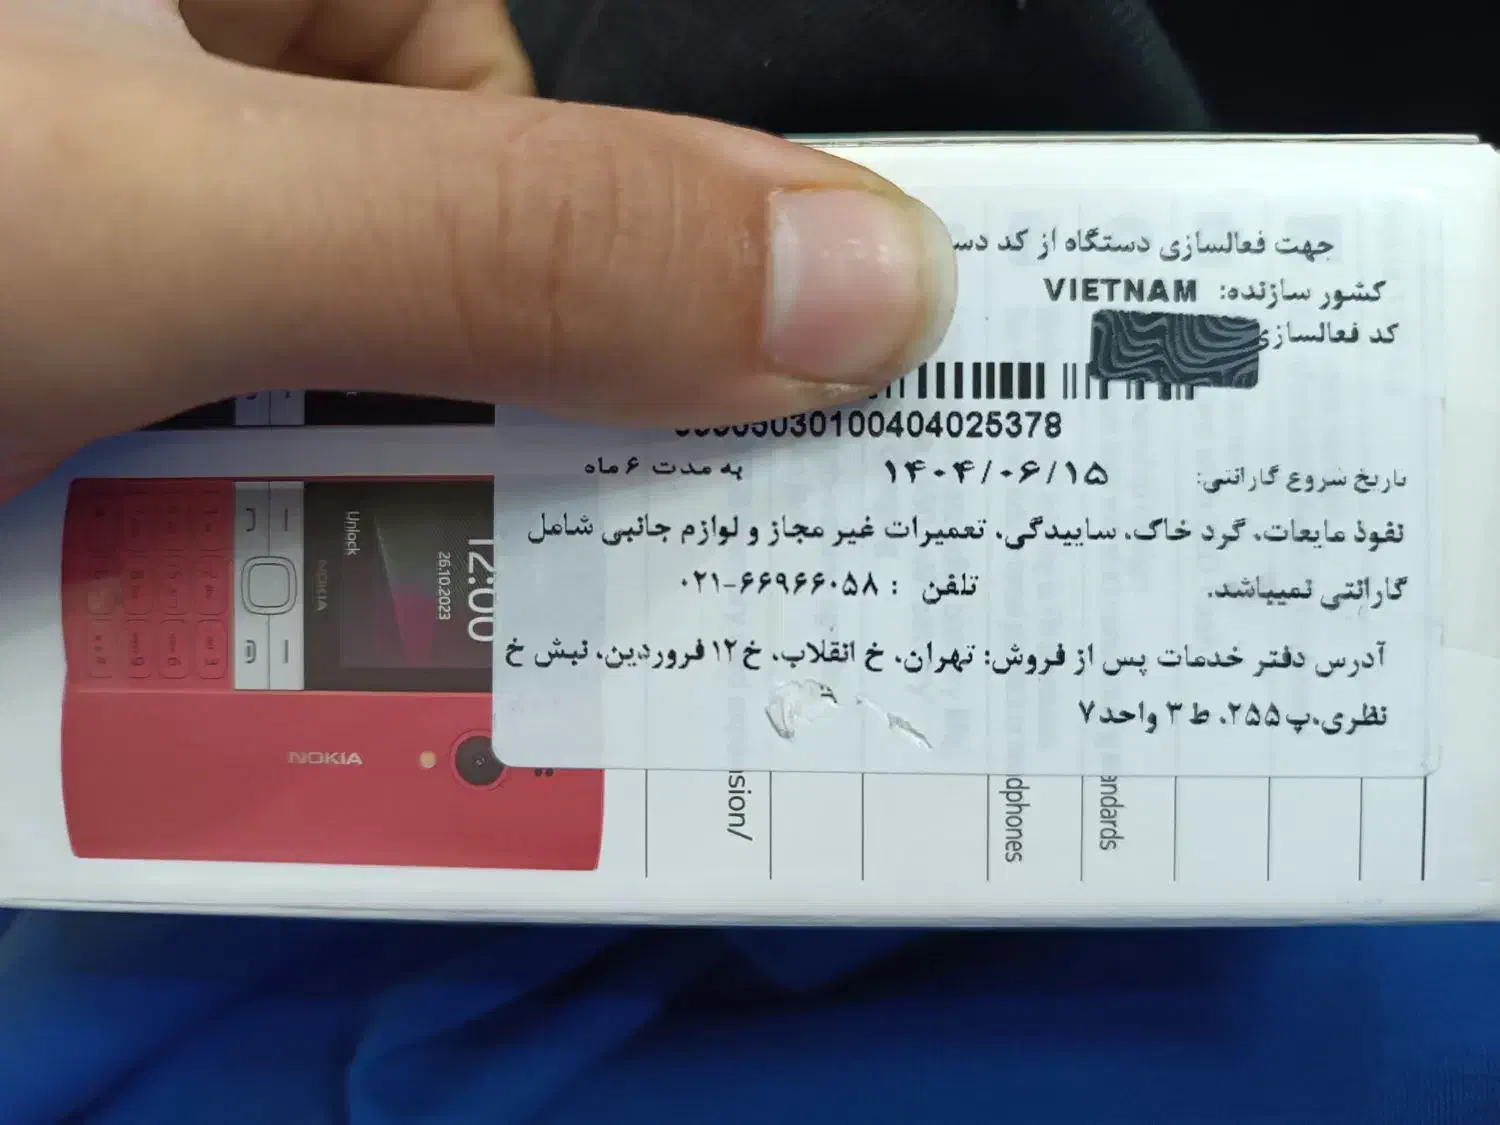 جهت فعالسازی دستگاه از کد
کشور سازنده: VIETNAM
کد فعالسازی
5030100404025378
تاریخ شروع گارانتی: ۱۴۰۴/۰۶/۱۵ به مدت ۶ ماه
نفوذ مایعات، گرد خاک، ساییدگی، تعمیرات غیر مجاز و لوازم جانبی شامل
گارانتی نمیباشد.
تلفن : ۰۲۱-۶۶۹۶۶۰۵۸
آدرس دفتر خدمات پس از فروش: تهران، خ انقلاب، خ ۱۲ فروردین، نبش خ
نظری،پ۲۵۵، ط ۳ واحد۷
12:00
26.10.2023
Unlock
NOKIA
NOKIA